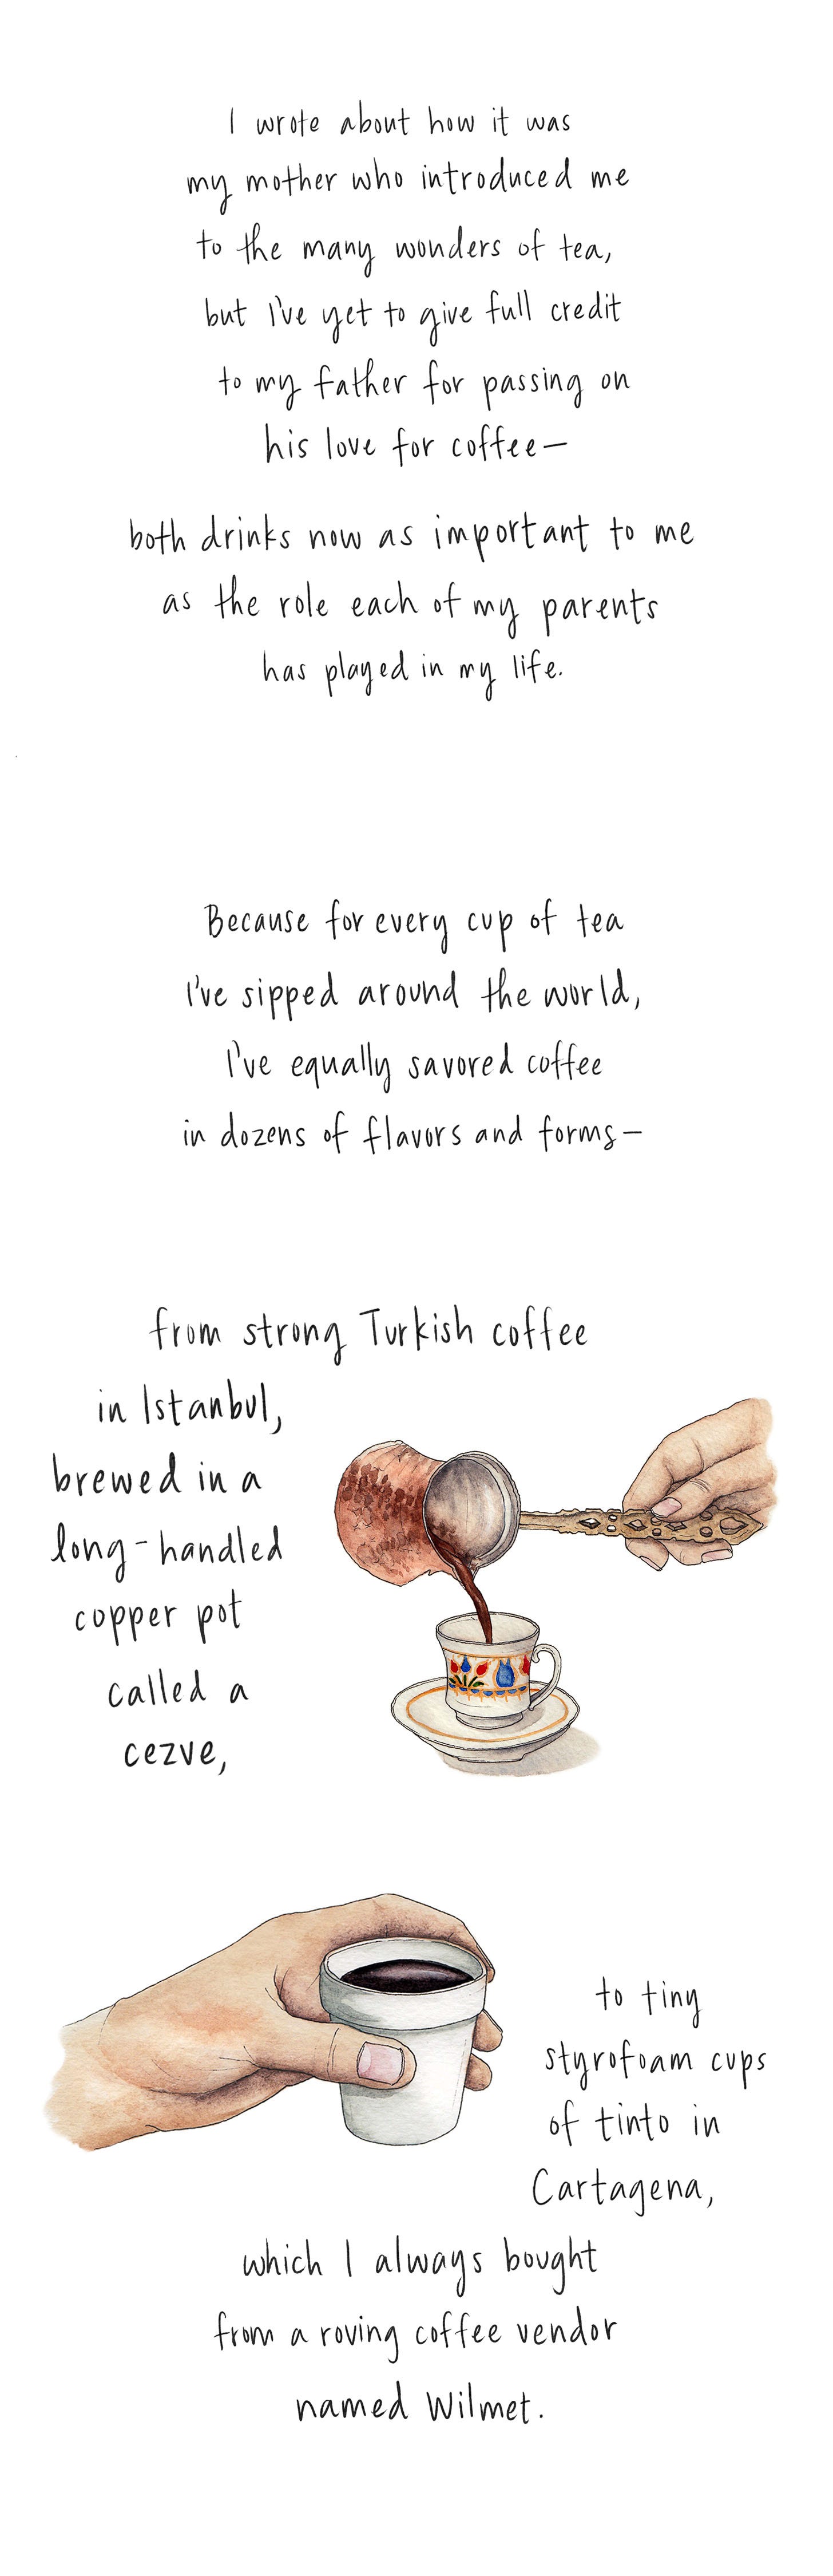 I wrote about how it was
my mother who introduced me
to the many wonders of tea,
but I've yet to give full credit
to my father for passing on
his love for coffee—
both drinks now as important to me
as the role each of my parents
has played in my life.
Because for every cup of tea
I've sipped around the world,
I've equally savored coffee
in dozens of flavors and forms—
from strong Turkish coffee
in Istanbul,
brewed in a
long-handled
copper pot
called a
cezve,
to tiny
styrofoam cups
of tinto in
Cartagena,
which I always bought
from a roving coffee vendor
named Wilmet.